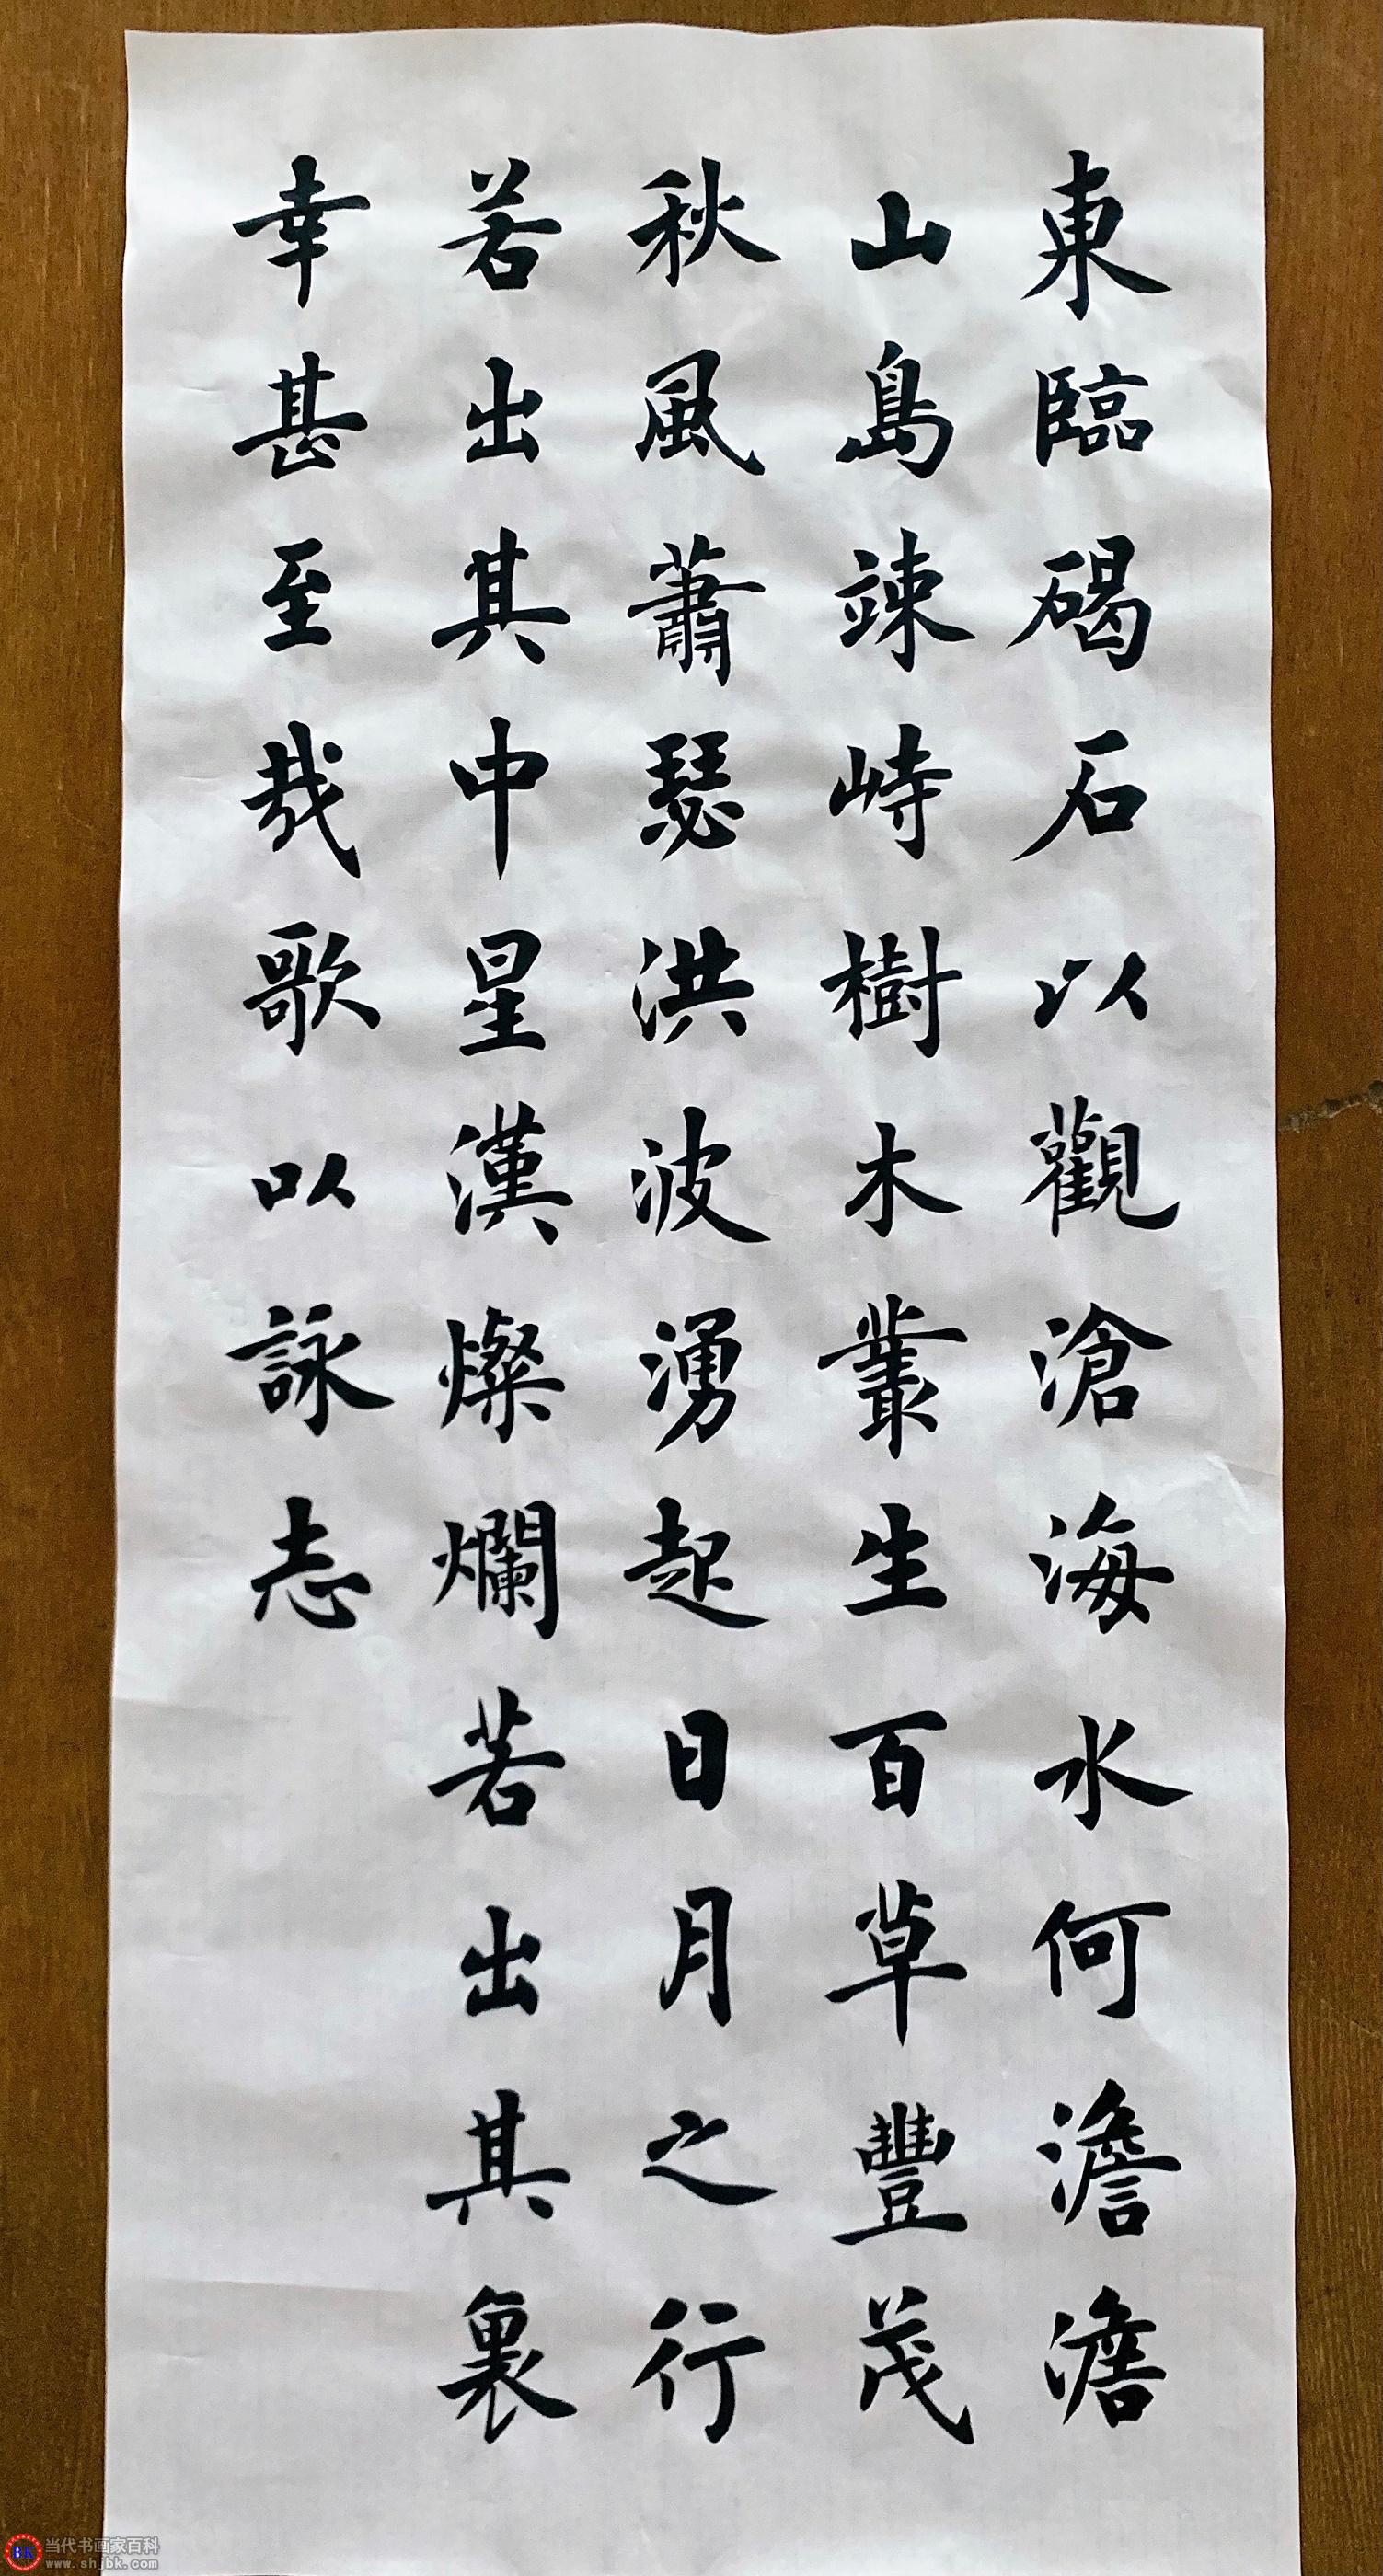 東臨碣石以觀滄海水何澹澹
山島竦峙樹木叢生百草豐茂
秋風蕭瑟洪波湧起日月之行
若出其中星漢燦爛若出其裏
幸甚至哉歌以詠志
当代书画家百科
www.shjbk.com
BK